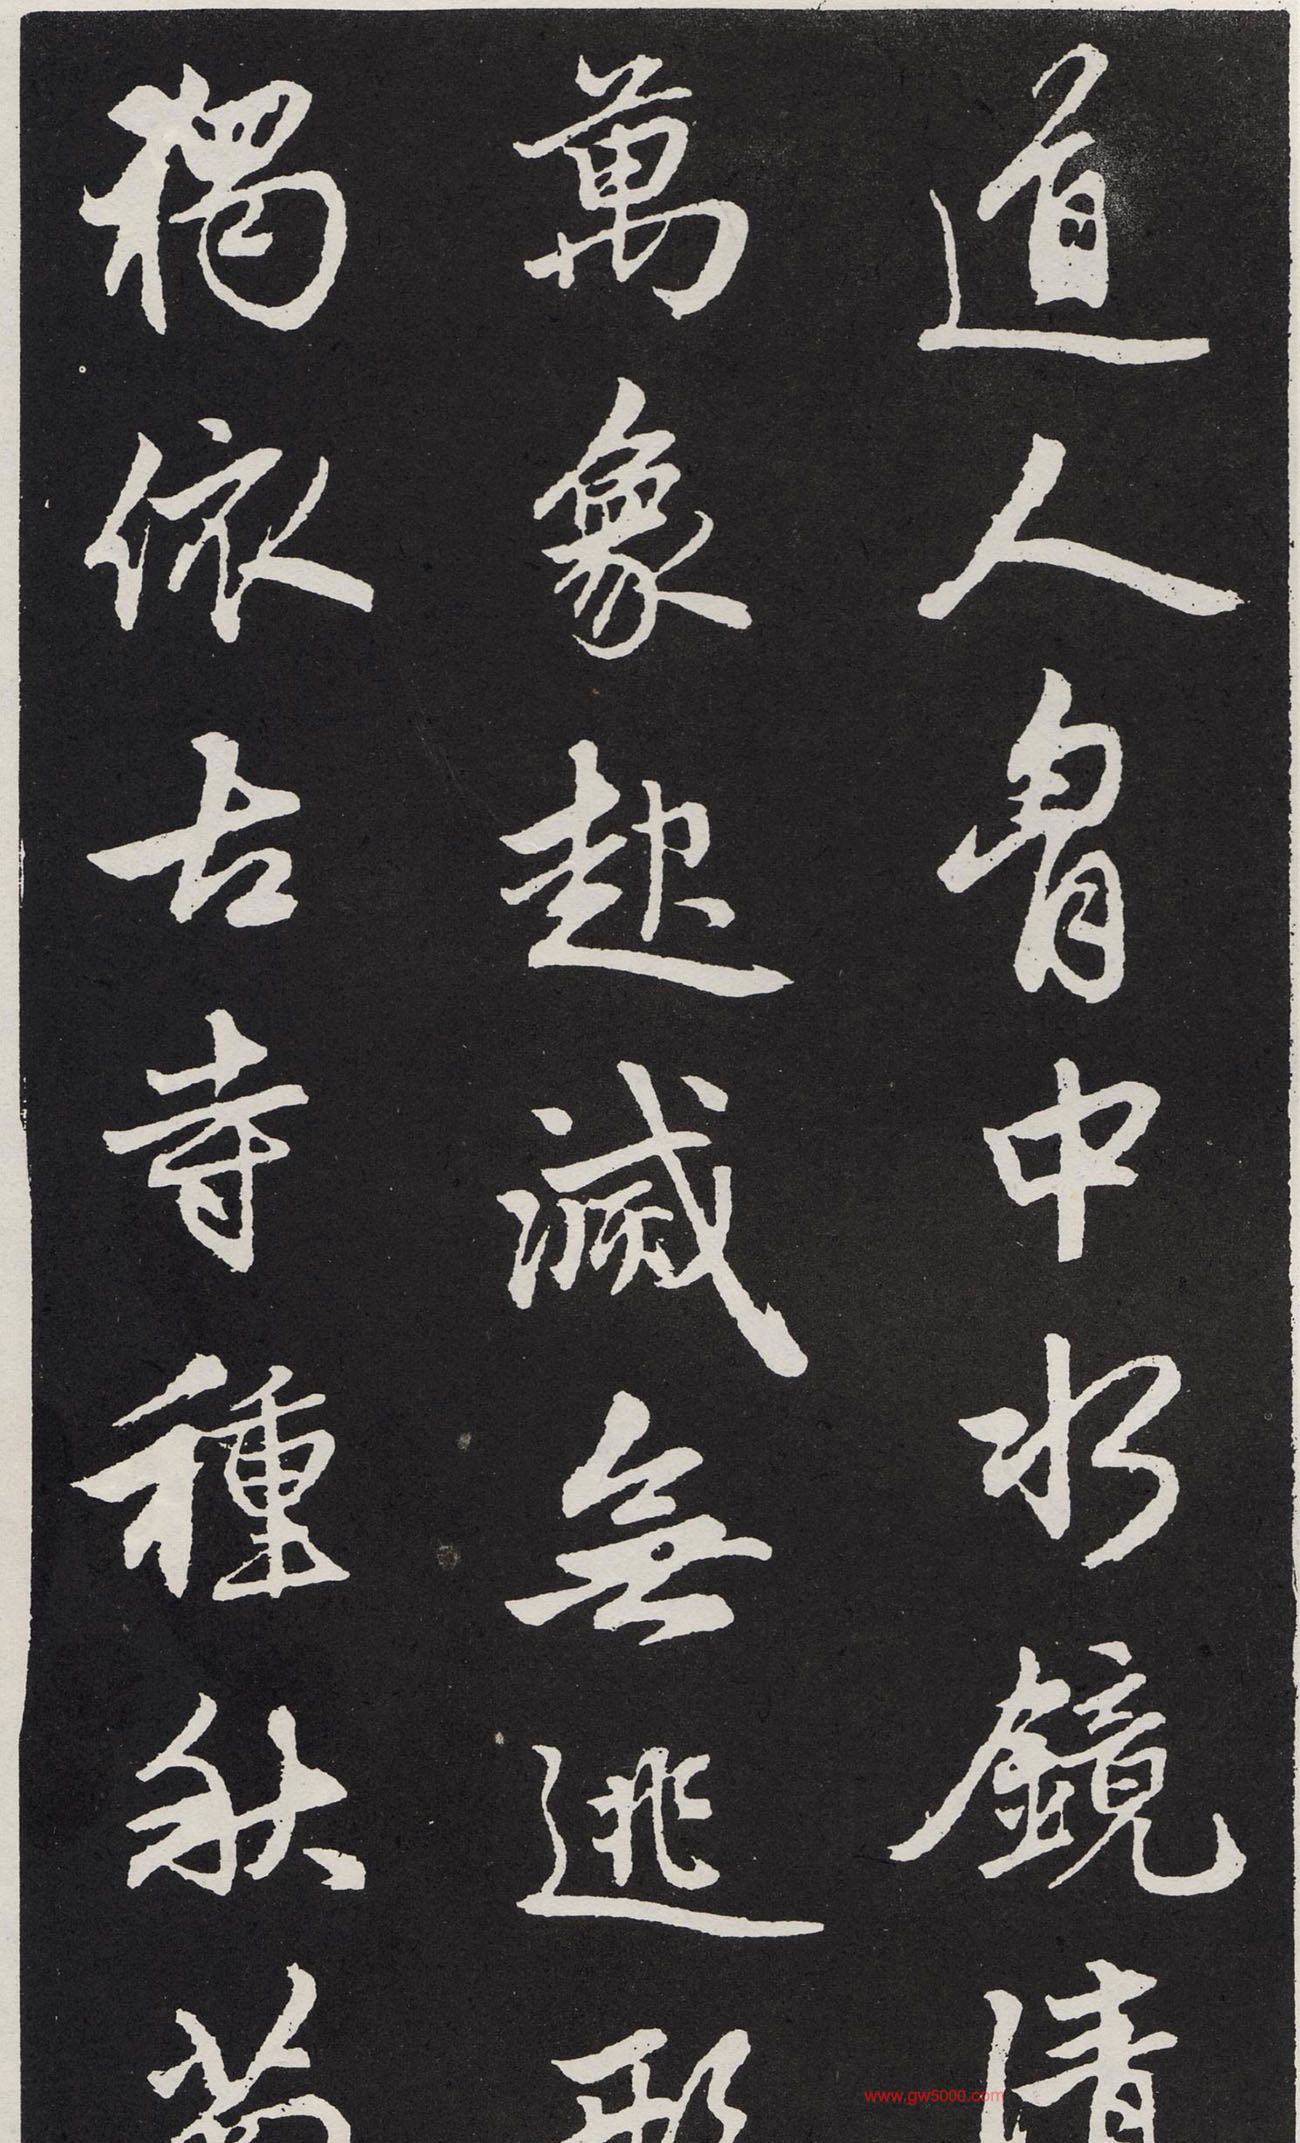 道人胷中水鏡清
萬象起滅無逃形
獨依古寺種秋菊
www.gw5000.com